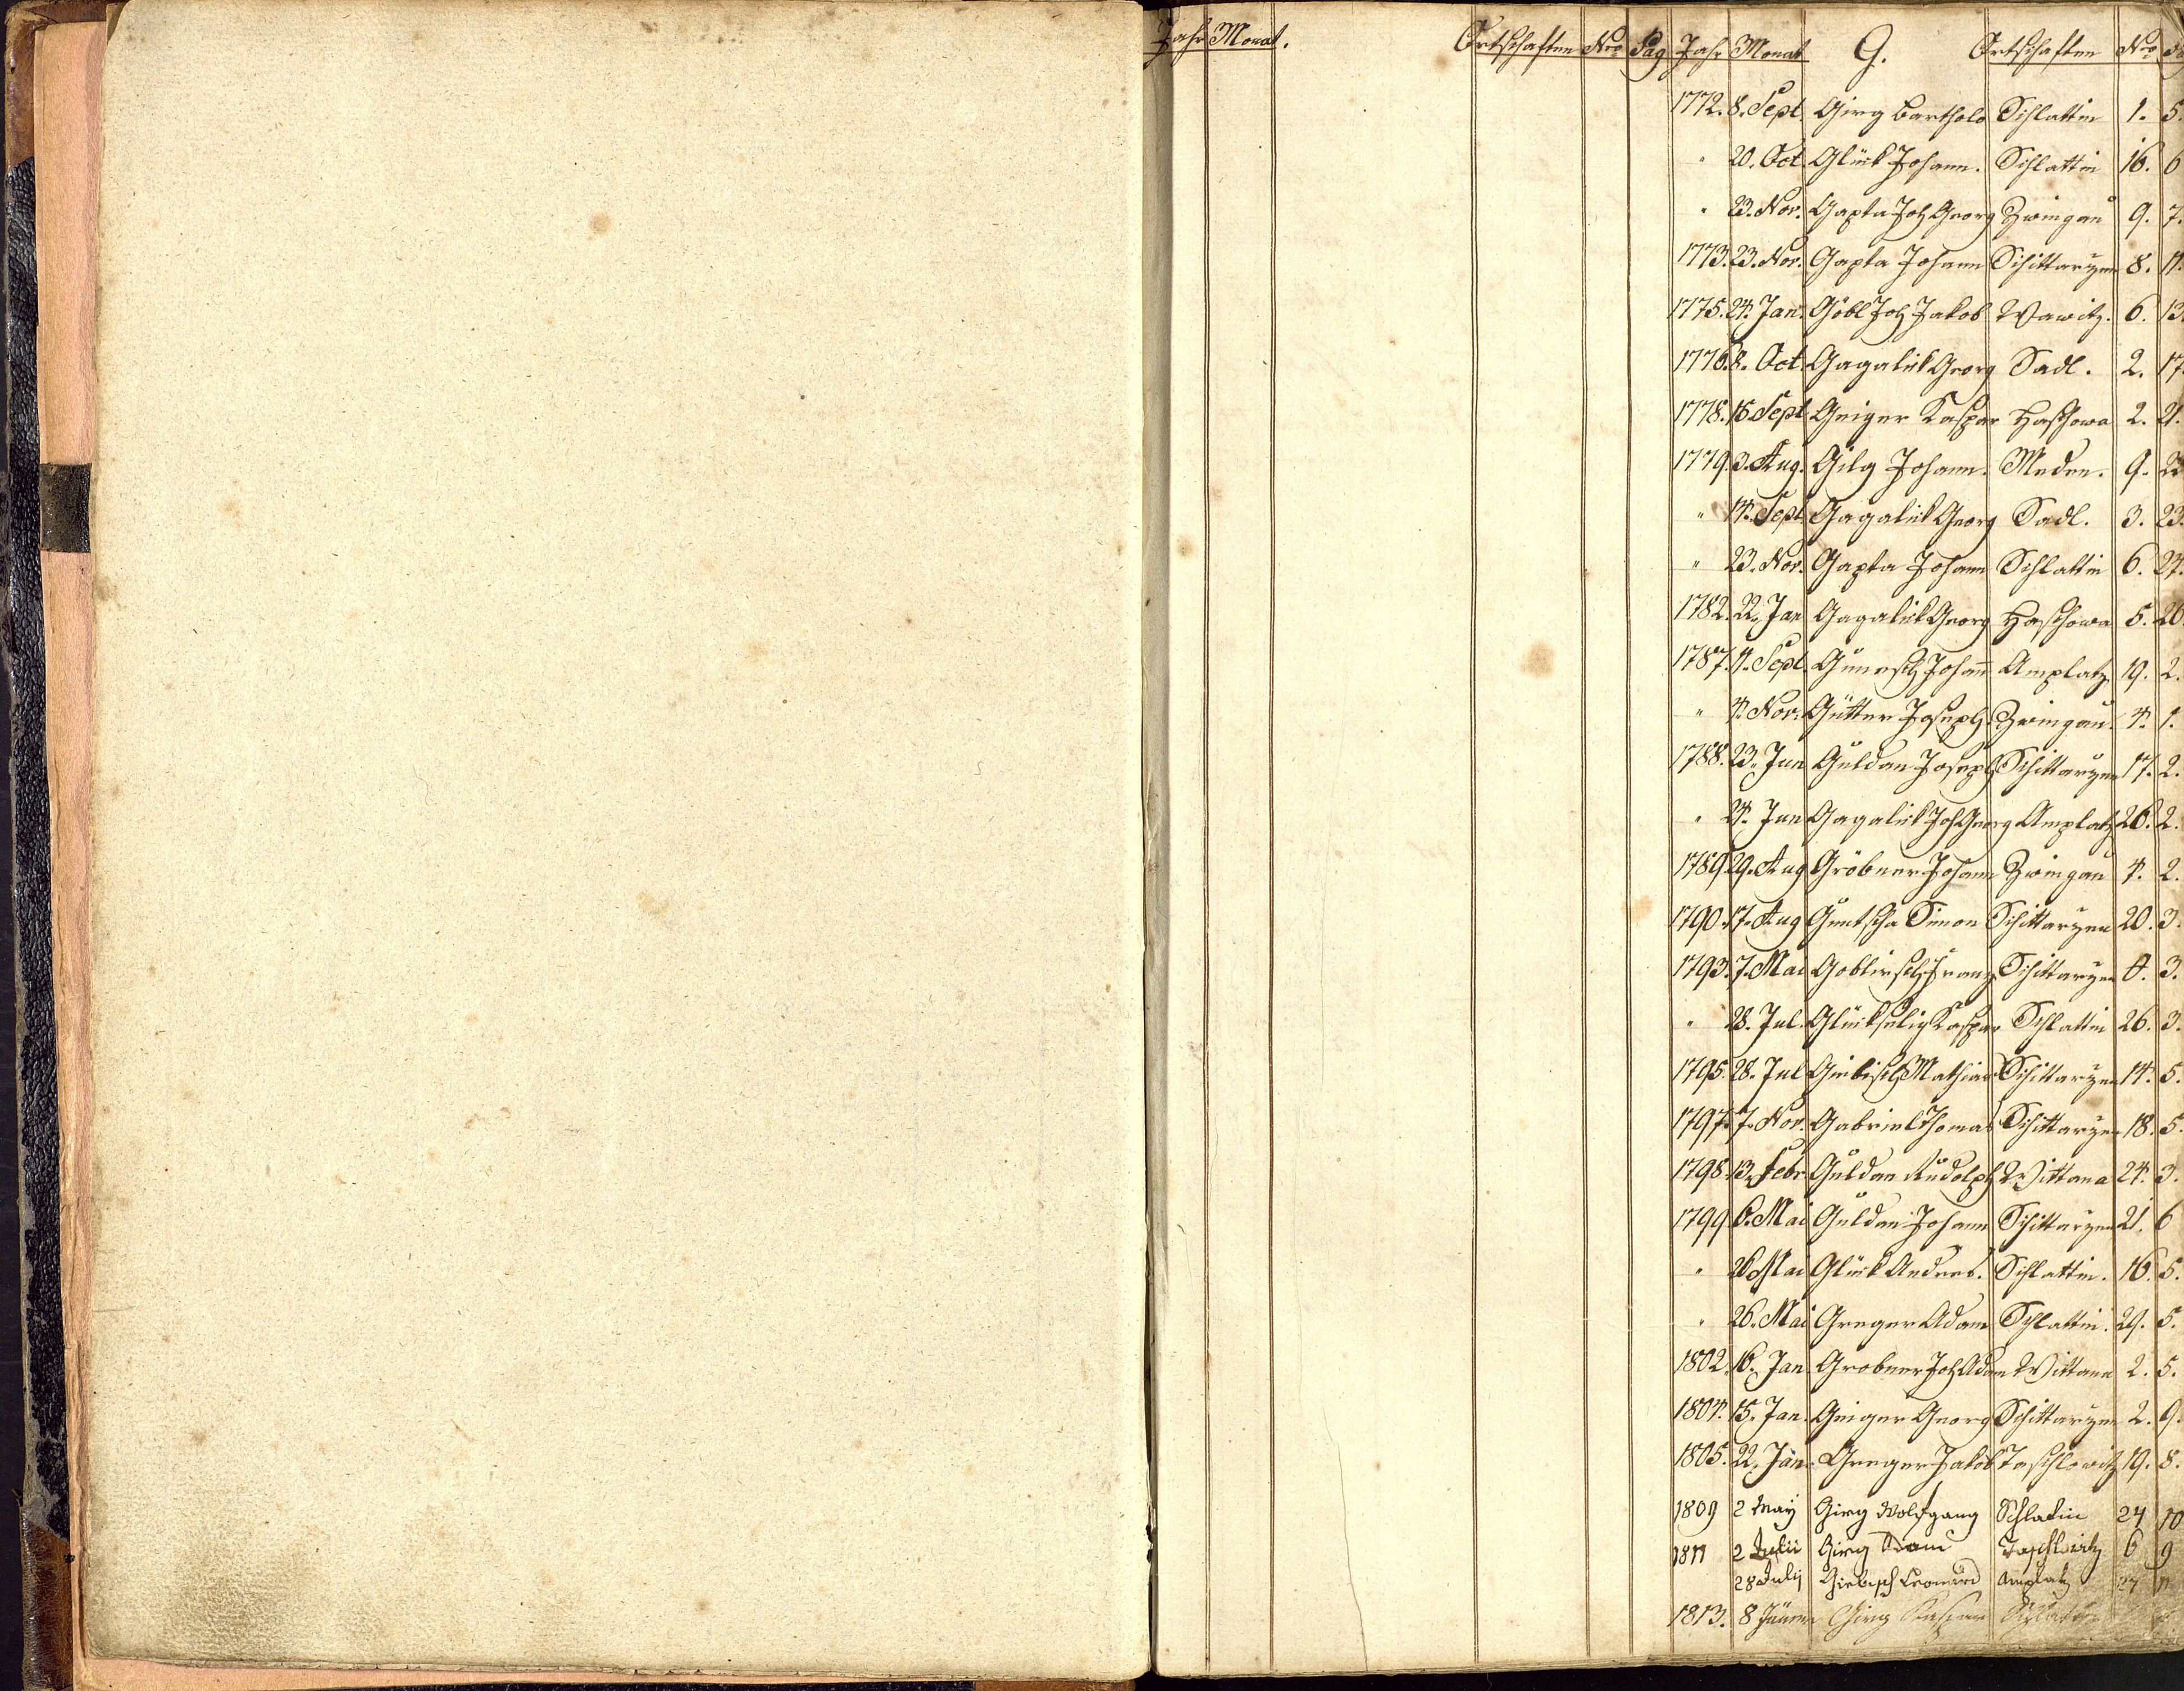 Jahr Monat. Ortschaften Nro Pag Jahr Monat G. Ortschaften Nro
1772. 8. Sept. Girg Bartholo Schlattin 1. 5.
" 20. Oct. Glück Johann. Schlattin 16. 6
" 23. Nov. Gazta Joh Georg Zwingau 9. 7.
1773. 23. Nov. Gazta Johann Schittarzen 8. 11.
1775. 24. Jan. Göbl Joh Jakob Wawitz. 6. 13.
1776. 8. Oct. Gagalick Georg Sadl. 2. 17.
1778. 15 Sept Geiger Kaspar Haschowa 2. 21.
1779. 3. Aug. Gilg Johann. Meden. 9. 22
" 14. Sept Gagalick Georg Sadl. 3. 23.
" 23. Nov. Gazta Johann Schlattin 6. 24.
1782. 22. Jan Gagalick Georg Haschowa 5. 26.
1787. 11. Sept. Johann Amplatz 19. 2.
" 4. Nov. Gütter Joseph. Zwingau. 4. 1.
1788. 23. Jun Guldan Joseph Schittarzen 17. 2.
" 24. Jun Gagalick Joh Georg Amplatz 26. 2.
1789 29. Aug Gröbner Johann Zwingau 4. 2.
1790. 17. Aug Simon Schittarzen 20. 3.
1793. 7. Mai Goblirsch Franz Schittarzen 3.
" 28. Jul. Glückselig Kaspar Schlattin 26. 3.
1795. 28. Jul Giebisch Mathias Schittarzen 14. 5.
1797. 7. Nov. Gabriel Thomas Schittarzen 18. 5.
1798. 13. Febr. Guldan Rudolph Wittana 24. 3.
1799 6. Mai Guldan Johann Schittarzen 21. 6
" 26 Mai Glück Andreas. Schlattin. 16. 5.
" 26. Mai Greger Adam Schlattin. 29. 5.
1802. 16. Jan Grobner Joh Adam Wittana 2. 5.
1804. 15. Jan. Geiger Georg Schittarzen 2. 9.
1805. 22. Jän. Greger Jakob Taschlowitz 19. 8.
1809 2 May Girg Wolfgang Schlatin 24 10
1811 2 Julii Girg Adam Taschlowitz 6 9
28 July Giebisch Leonard Amplatz 27 11
1813. 8 Jänner Girg Kaspar Schlatin